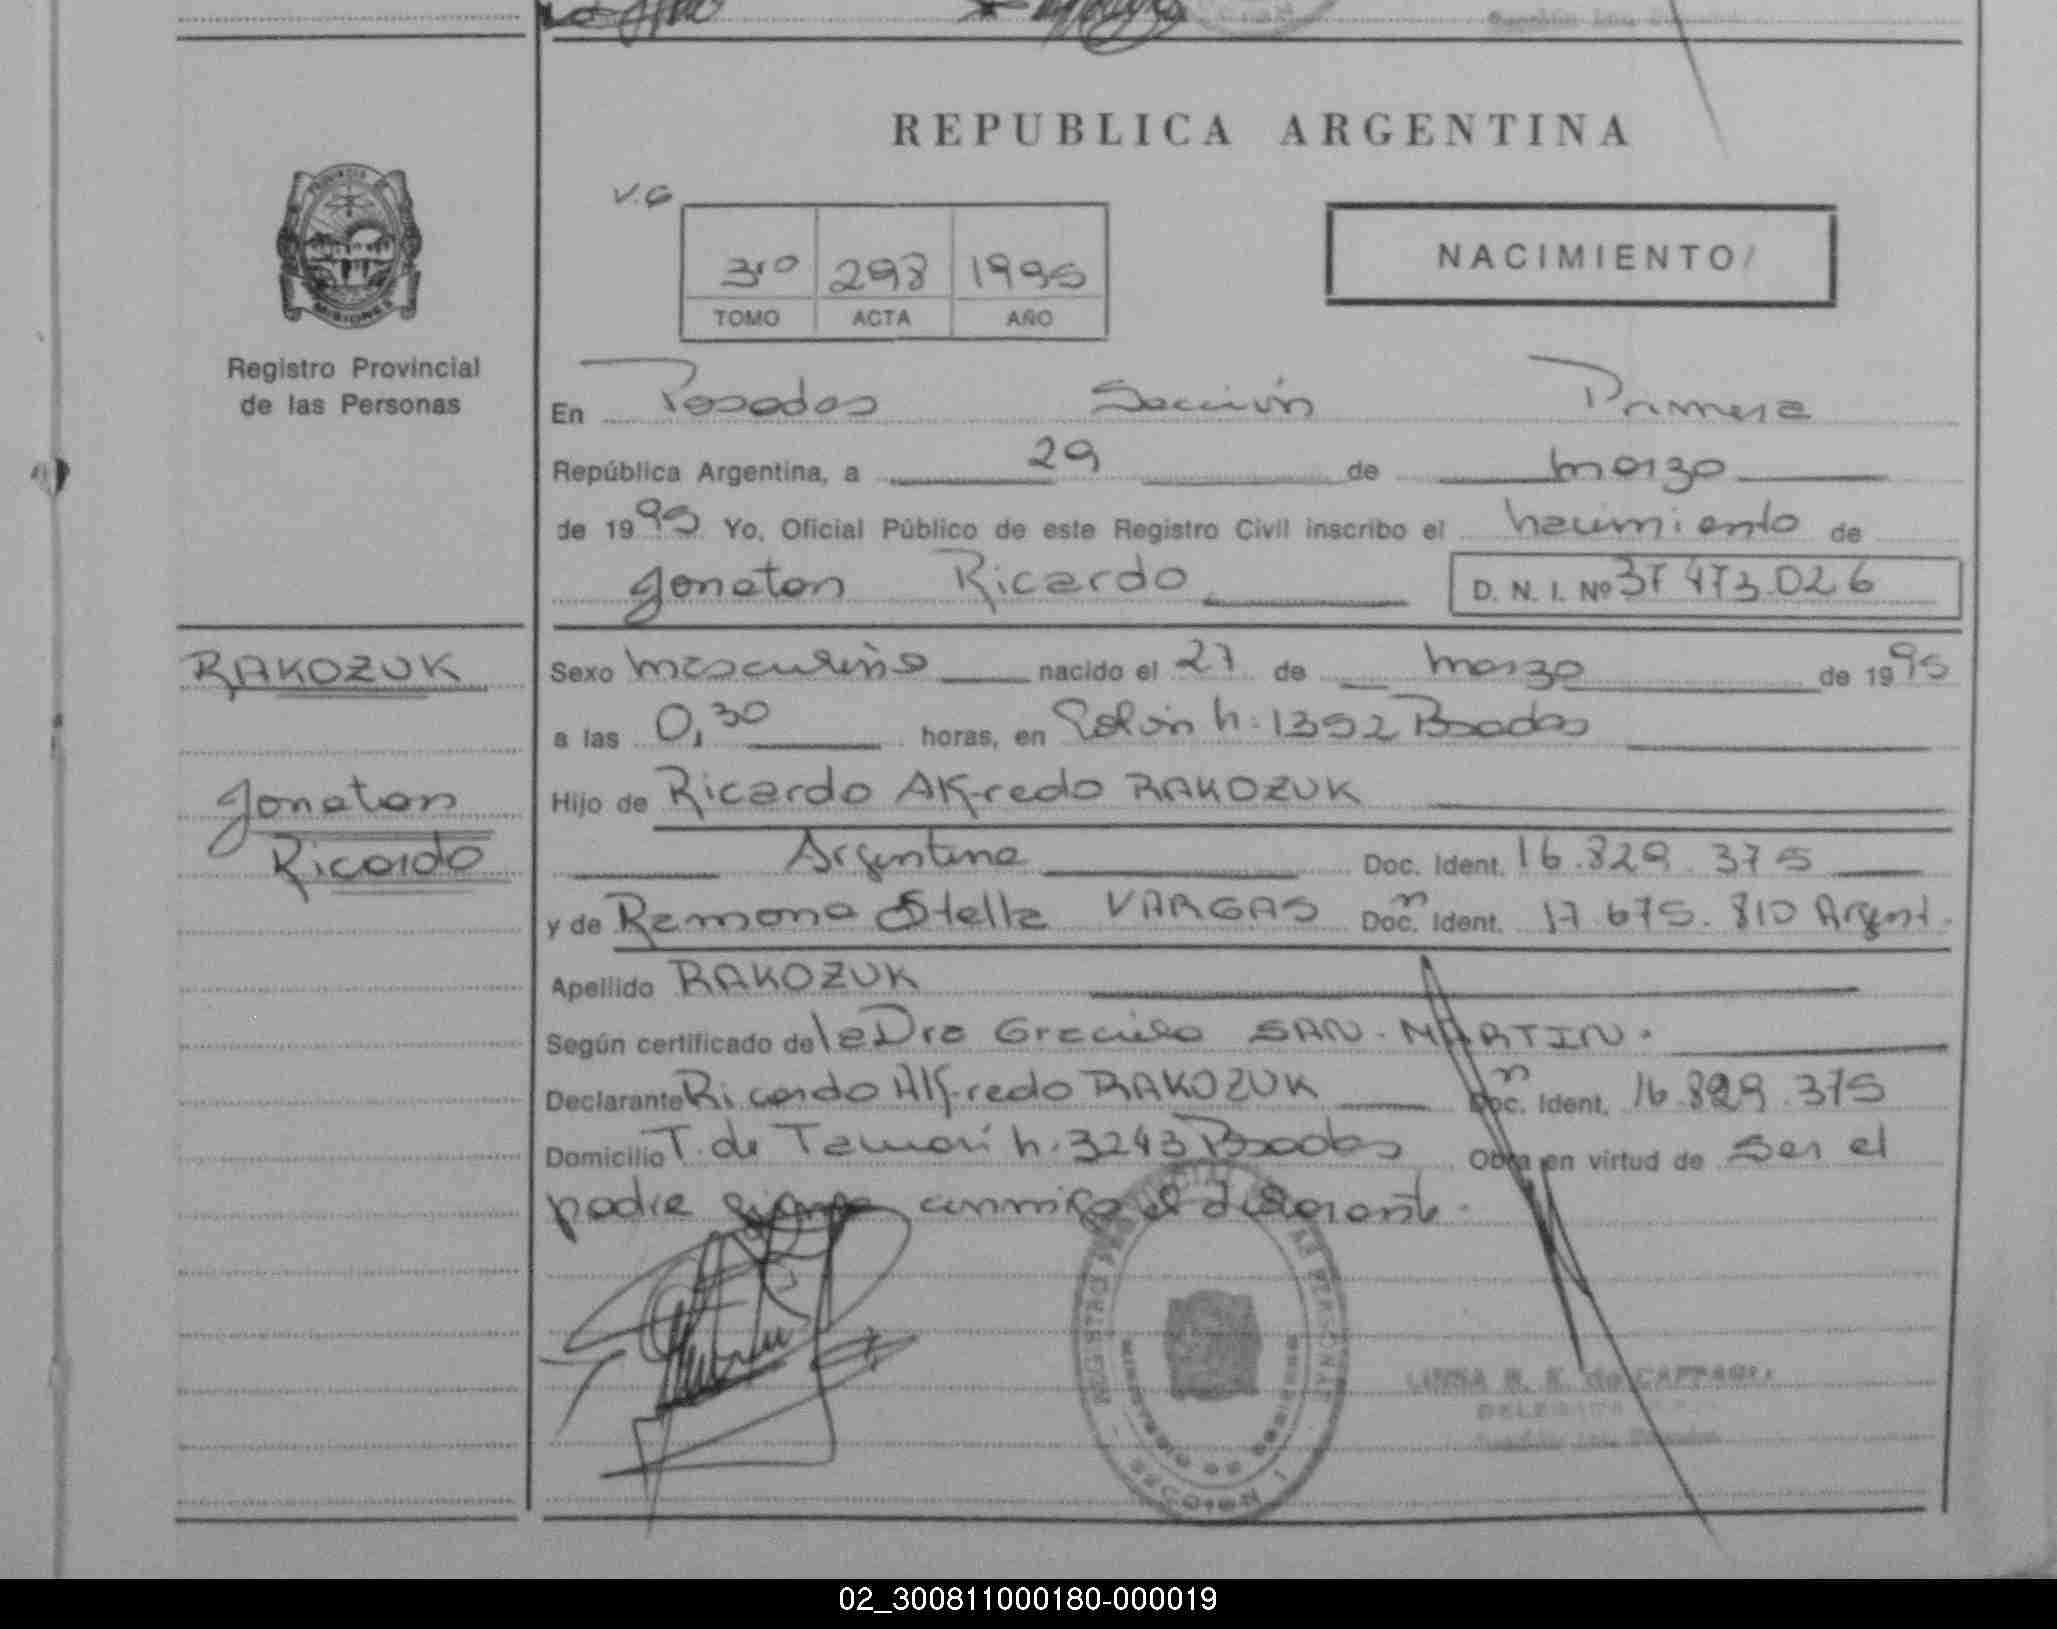 REPUBLICA ARGENTINA
V.6
3ro 298 1995
TOMO ACTA AÑO
NACIMIENTO
PROVINCIA DE
MISIONES
Registro Provincial
de las Personas
En Posadas Sección Primera
República Argentina, a 29 de marzo
de 1995 Yo, Oficial Público de este Registro Civil inscribo el nacimiento de
Jonatan Ricardo D. N. I. Nº 37 473.026
RAKOZUK
Jonatan
Ricardo
Sexo masculino nacido el 27 de marzo de 1995
a las 0,30 horas, en n: 1352 Posadas
Hijo de Ricardo Alfredo RAKOZUK
Argentina Doc. Ident. 16.829.375
y de Ramona Stella VARGAS Doc. Ident. 17.675.810 Argent.
Apellido RAKOZUK
Según certificado de la Dra Graciela SAN-MARTIN.
Declarante Ricardo Alfredo RAKOZUK Doc. Ident. 16.829.375
Domicilio T. de n. 3243 Posadas Obra en virtud de ser el
padre firma conmigo el declarante.
REGISTRO PROVINCIAL DE LAS PERSONAS
MINISTERIO DE GOBIERNO
SECCION 1
DELEGADA
02_300811000180-000019